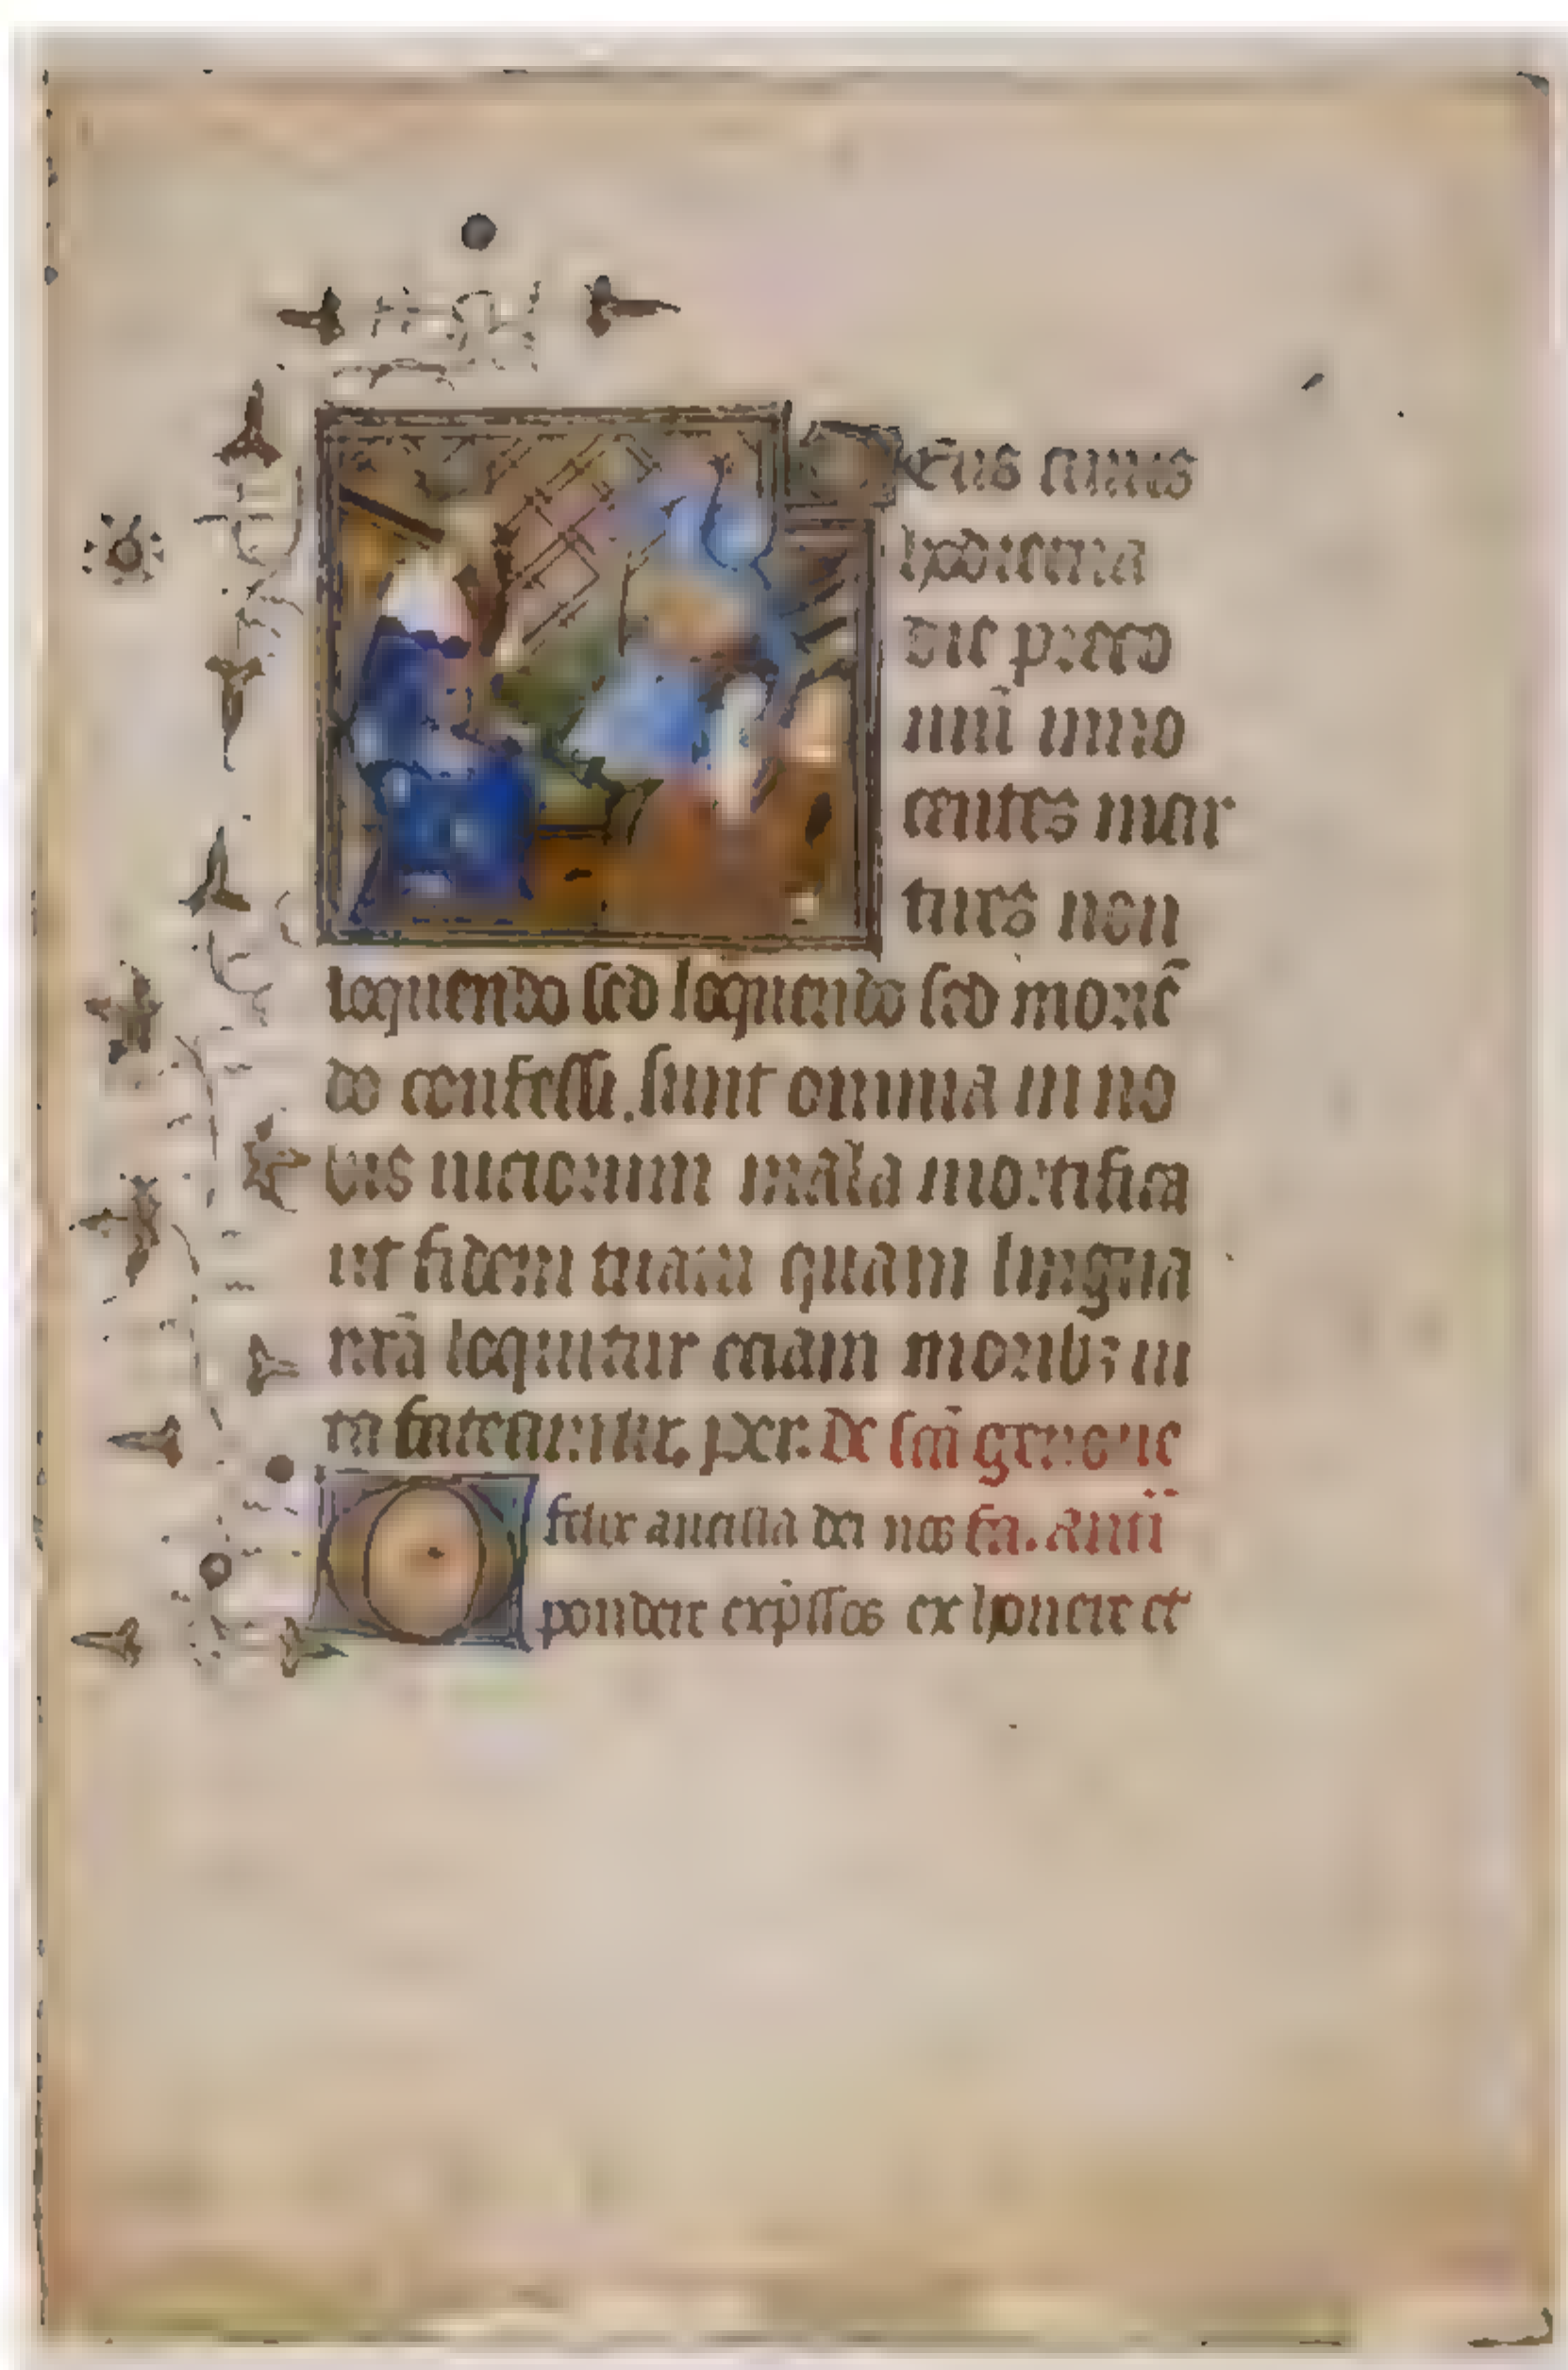 eus cuius
hodierna
die preco
niu̅ inno
centes mar
tires non
loquendo sed loquendo sed morie̅
do confessi. sunt omnia in no
bis uiciorum mala mortifica
ut fidem tuam quam lingua
nr̅a̅ loquitur eciam moribꝫ in
ta fateatur. per. De sc̅i̅
felix ancilla dei nos an̅
pondere ex